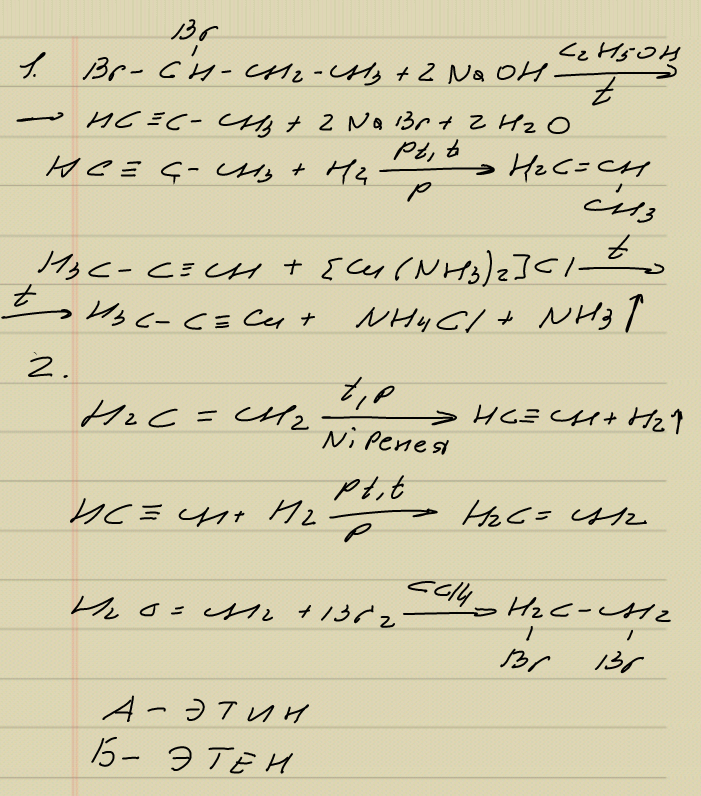 Br
1. Br - CH - CH2 - CH3 + 2 NaOH C2H5OH t →
→ HC ≡ C - CH3 + 2 NaBr + 2 H2O
HC ≡ C - CH3 + H2 Pt, t P → H2C = CH
CH3
H3C - C ≡ CH + [Cu(NH3)2]Cl t →
t → H3C - C ≡ Cu + NH4Cl + NH3↑
2.
H2C = CH2 t, P Ni Ренея → HC ≡ CH + H2↑
HC ≡ CH + H2 Pt, t P → H2C = CH2
H2C = CH2 + Br2 CCl4 → H2C - CH2
Br Br
А - ЭТИН
Б - ЭТЕН